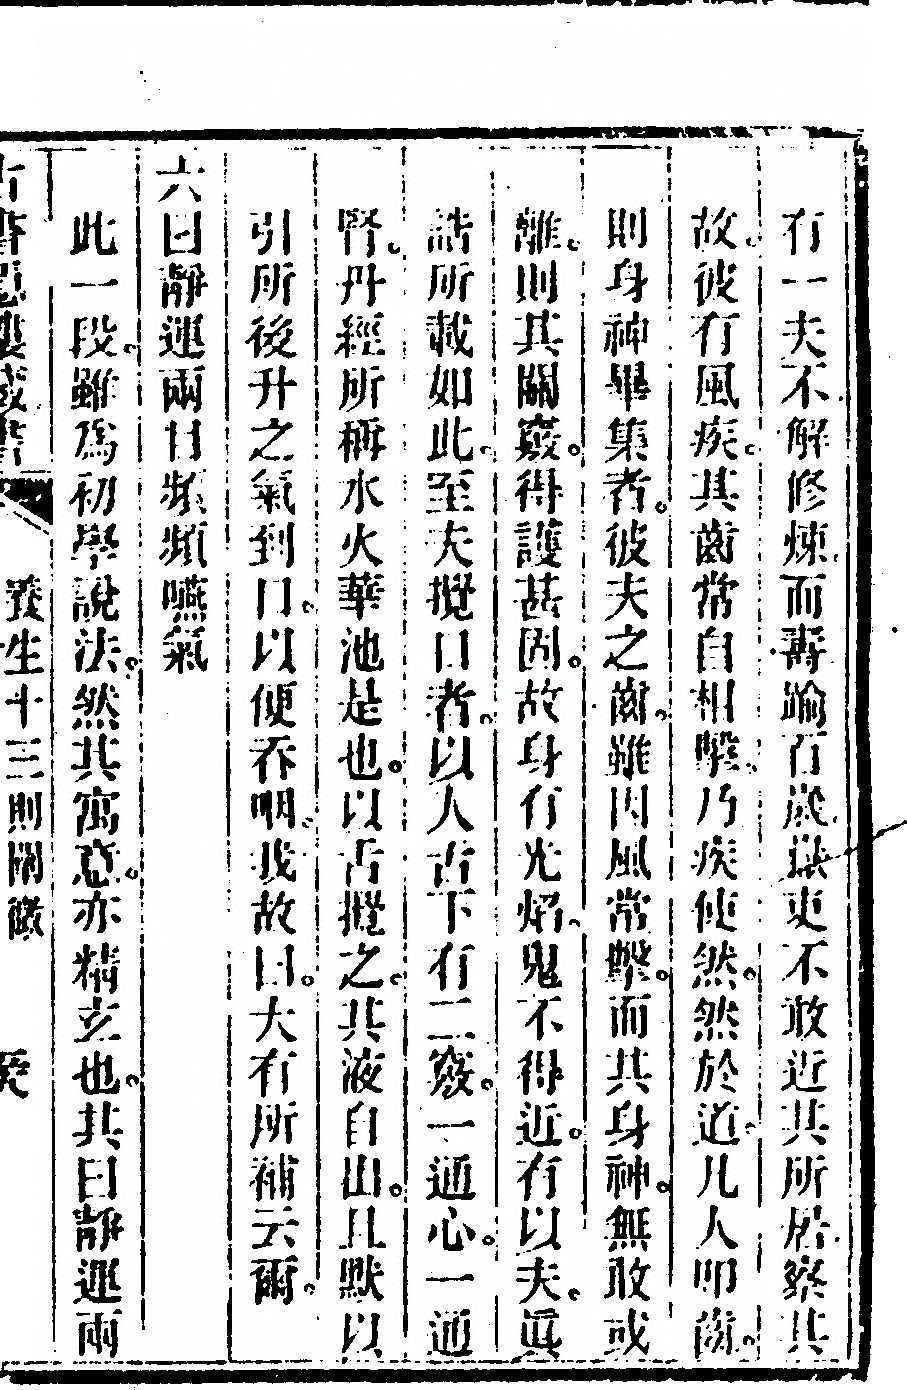 有一夫不解修煉而壽踰百歲嶽吏不敢近其所居察其
故。彼有風疾。其齒常自相擊。乃疾使然。然於道。凡人叩齒。
則身神畢集者。彼夫之齒。雖因風常擊。而其身神。無敢或
離。則其關竅。得護甚固。故身有光焰。鬼不得近。有以夫。眞
誥所載如此。至夫攪口者。以人舌下有二竅。一通心。一通
腎。丹經所稱水火華池是也。以舌攪之。其液自出。且默以
引所後升之氣到口。以便吞咽。我故曰。大有所補云爾。
六曰靜運兩目頻頻嚥氣
此一段。雖爲初學說法。然其寓意。亦精玄也。其曰靜運兩
古書隱樓藏書
養生十三則闡微